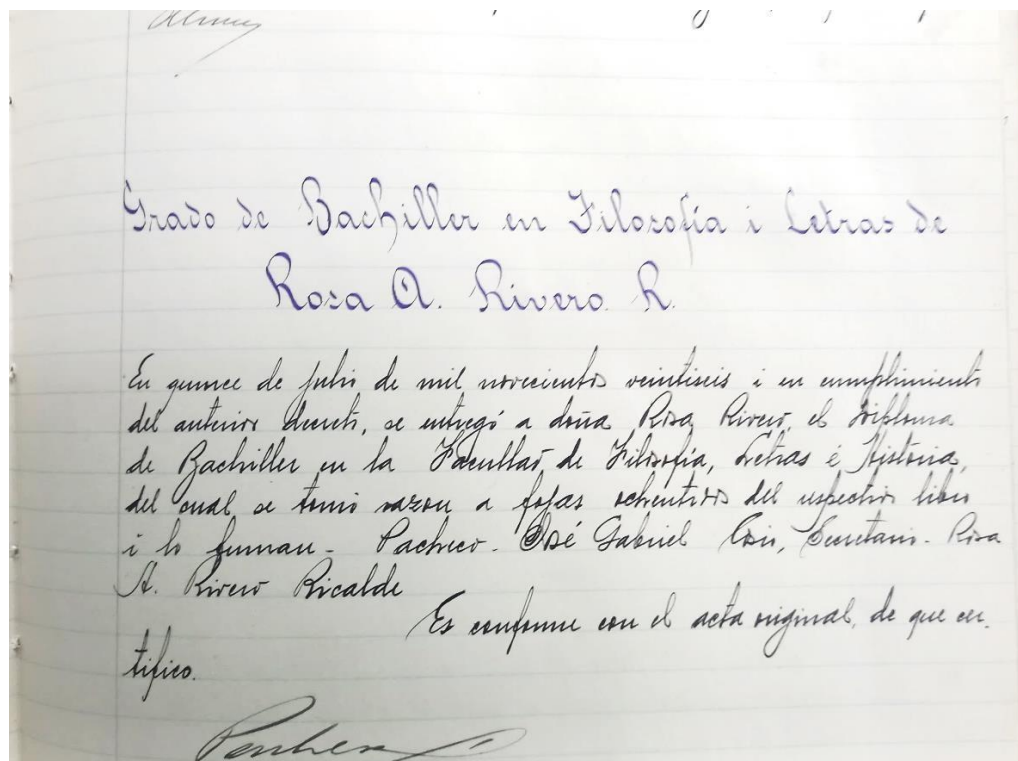 Grado de Bachiller en Filosofía i Letras de
Rosa A. Rivero R.
En quince de julio de mil novecientos veintiseis i en cumplimiento
del anterior decreto, se entregó a doña Rosa Rivero, el Diploma
de Bachiller en la Facultad de Filosofía, Letras é Historia,
del cual se tomó razon a fojas ochentidos del respectivo libro
i lo firman - Pacheco - José Gabriel Cosio, Secretario - Rosa
A. Rivero Ricalde
Es conforme con el acta original, de que cer-
tifico.